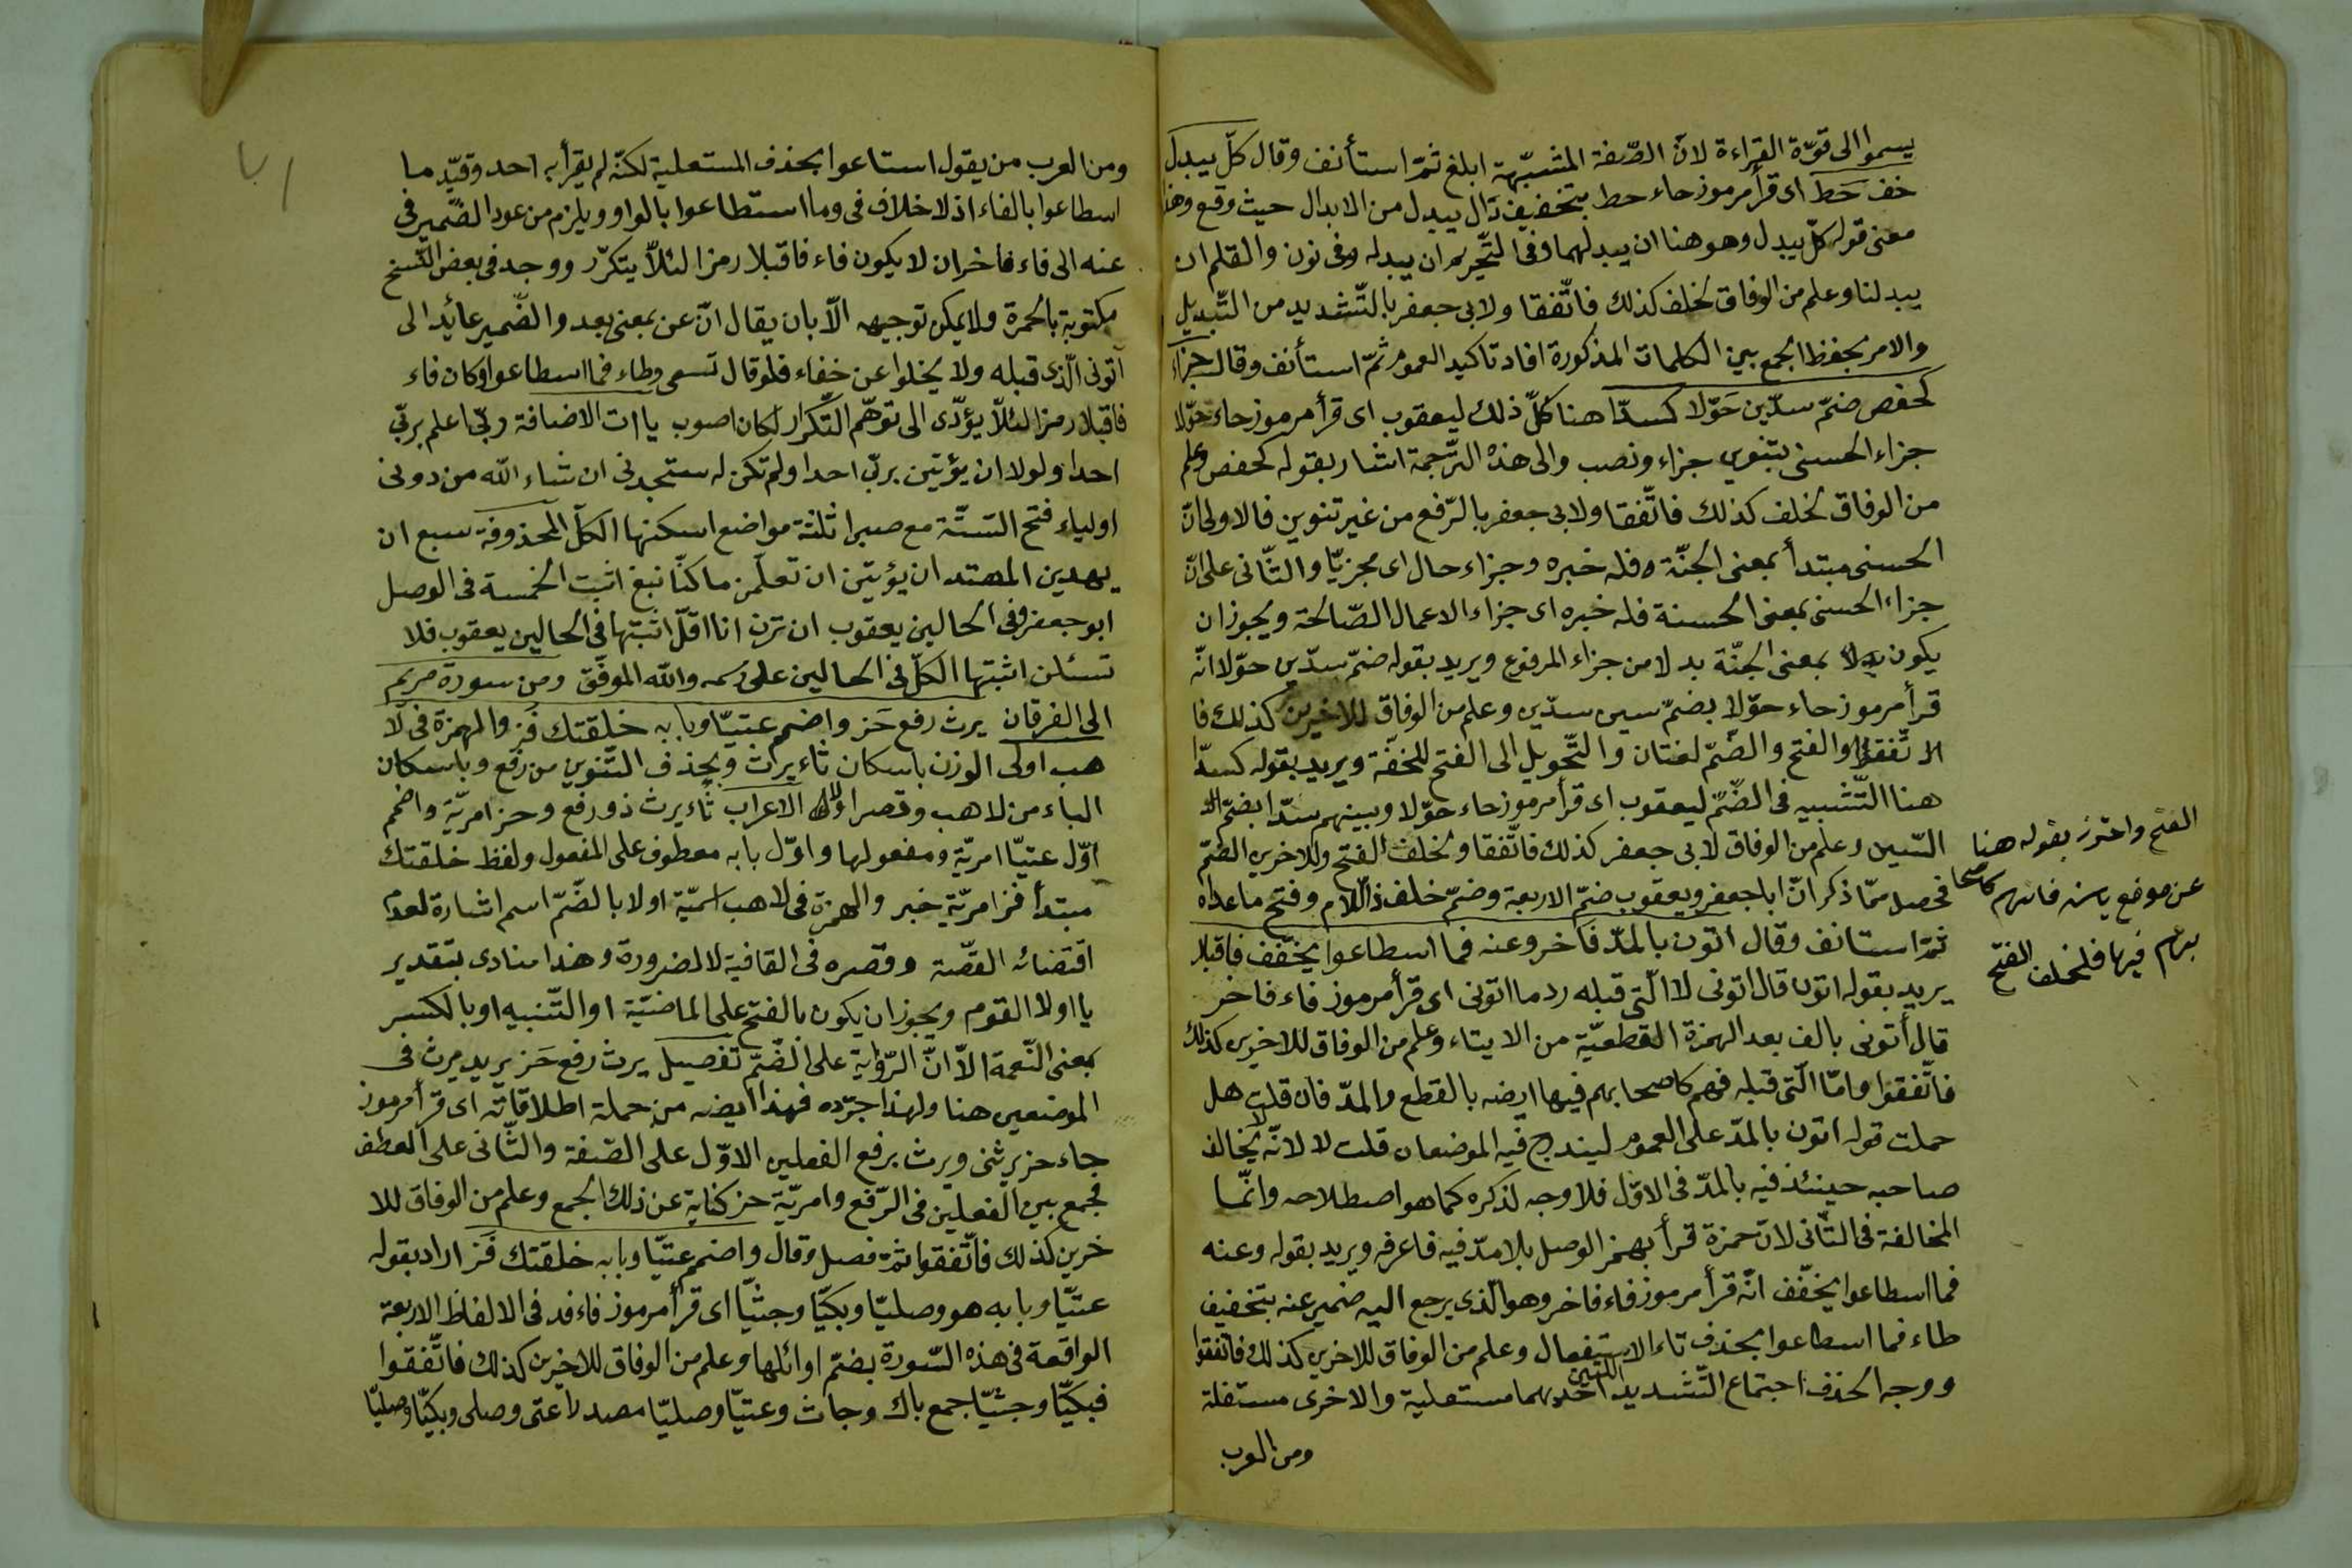 يسموا الى قوّة القراءة لانّ الصّفة المشبّهة ابلغ ثمّ استأنف وقال كلّ يبدل
خف حَط اى قرأ مرموز حاء حط بتخفيف دال يبدل من الابدال حيث وقع وهذا
معنى قوله كلّ يبدل وهو هنا ان يبدلهما وفى التّحريم ان يبدله وفى نون والقلم ان
يبدلنا وعلم من الوفاق لخلف كذلك فاتّفقا ولابى جعفر بالتّشديد من التّبديل
والامر بحفظ الجمع بين الكلمات المذكورة افاد تاكيد العموم ثمّ استأنف وقال جزاء
كحفص ضمّ سدّين حَوّلا كسدّا هنا كلّ ذلك ليعقوب اى قرأ مرموز حاء حوّلا
جزاء الحسنى بتنوين جزاء ونصب والى هذه التّرجمة اشار بقوله كحفص وعلم
من الوفاق لخلف كذلك فاتّفقا ولابى جعفر بالرّفع من غير تنوين فالاولى انّ
الحسنى مبتدأ بمعنى الجنّة وفله خبره وجزاء حال اى مجزيّا والثّانى على انّ
جزاء الحسنى بمعنى الحسنة فله خبره اى جزاء الاعمال الصّالحة ويجوز ان
يكون بدلا بمعنى الجنّة بدلا من جزاء المرفوع ويريد بقوله ضمّ سدّين حوّلا انّه
قرأ مرموز حاء حوّلا بضمّ سين سدّين وعلم من الوفاق للاخيرين كذلك فا
الاتّفقوا والفتح والضّمّ لغتان والتّحويل الى الفتح للخفّة ويريد بقوله كسدّا
هنا التّشبيه فى الضّمّ ليعقوب اى قرأ مرموز حاء حوّلا وبينهم سدّا بضمّ
السّين وعلم من الوفاق لابى جعفر كذلك فاتّفقا ولخلف الفتح وللاخرين الضّمّ
فحصل ممّا ذكر انّ ابا جعفر ويعقوب ضمّ الاربعة وضمّ خلف ذا اللّام وفتح ما عداه
ثمّ استانف وقال اتون بالمدّ فاخر وعنه فما اسطاعوا يخفّف فاقبلا
يريد بقوله اتون قال اتونى لا الّتى قبله ردما اتونى اى قرأ مرموز فاء فاخر
قال أتونى بالف بعد الهمزة القطعيّة من الايتاء وعلم من الوفاق للاخرين كذلك
فاتّفقوا وامّا الّتى قبله فهم كاصحابهم فيها ايضه بالقطع والمدّ فان قلت هل
حملت قوله اتون بالمدّ على العموم ليندرج فيه الموضعان قلت لا لانّه لا يخالف
صاحبه حينئذ فيه بالمدّ فى الاوّل فلا وجه لذكره كما هو اصطلاحه وانّما
المخالفة فى الثّانى لانّ حمزة قرأ بهمز الوصل بلا مدّ فيه فاعرفه ويريد بقوله وعنه
فما اسطاعوا يخفّف انّه قرأ مرموز فاء فاخر وهو الّذى يرجع اليه ضمير عنه بتخفيف
طاء فما اسطاعوا بحذف تاء الاستفعال وعلم من الوفاق للاخرين كذلك فاتّفقوا
ووجه الحذف اجتماع التّشديد احديهما مستعلية والاخرى مستفلة
ومن العرب
الفتح واحترز بقوله هنا
عن موضع ياسن فانهم كاصحا
بهم فيها فلخلف الفتح
ومن العرب من يقول استاعوا بحذف المستعلية لكنّه لم يقرأ به احد وقيّد ما
اسطاعوا بالفاء اذ لا خلاف فى وما استطاعوا بالواو ويلزم من عود الضّمير فى
عنه الى فاء فاخر ان لا يكون فاء فاقبلا رمزا لئلّا يتكرّر ووجد فى بعض النّسخ
مكتوبة بالحمرة ولا يمكن توجيهه الّا بان يقال انّ عن بمعنى بعد والضّمير عائد الى
اتونى الّذى قبله ولا يخلوا عن خفاء فلو قال تسمى وطاء فما اسطاعوا وكان فاء
فاقبلا رمزا لئلّا يؤدّى الى توهّم التّكرار لكان اصوب يا ات الاضافة ربّى اعلم بربّى
احدا ولولا ان يؤتين بربّ احدا ولم تكن له ستجدنى ان شاء الله من دونى
اولياء فتح السّتّة مع صبرا ثلثة مواضع اسكنها الكلّ المحذوفة سبع ان
يهدين المهتد ان يؤتين ان تعلّمن ما كنّا نبغ اثبت الخمسة فى الوصل
ابو جعفر وفى الحالين يعقوب ان ترن انا اقلّ اثبتها فى الحالين يعقوب فلا
تسئلن اثبتها الكلّ فى الحالين على رسمه والله الموفّق ومن سورة مريم
الى الفرقان يرث رفع حَز واضمم عتيّا وبابه خلقتك فَز والهمزة فى لا
هب اولى الوزن باسكان ثاء يرث وبحذف التّنوين من رفع وباسكان
الباء من لاهب وقصر اولا الاعراب ثاء يرث ذو رفع وحز امريّة واضمم
اوّل عتيّا امريّة ومفعولها واوّل بابه معطوف على المفعول ولفظ خلقتك
مبتدأ فز امريّة خبر والهمزة فى لاهب اسميّة اولا بالضّمّ اسم اشارة لعدم
اقتضائه القصّة وقصره فى القافية لا لضرورة وهذا منادى بتقدير
يا اولا القوم ويجوز ان يكون بالفتح على الماضيّة او التّنبيه او بالكسر
بمعنى النّعمة الّا انّ الرّواية على الضّمّ تفصيل يرث رفع حَز يريد يرث فى
الموضعين هنا ولهذا جرّده فهذا ايضه من جملة اطلاقاته اى قرأ مرموز
حاء حز يرثنى ويرث برفع الفعلين الاوّل على الصّفة والثّانى على العطف
فجمع بين الفعلين فى الرّفع وامريّة حز كناية عن ذلك الجمع وعلم من الوفاق للا
خرين كذلك فاتّفقوا ثمّ فصل وقال واضمم عتيّا وبابه خلقتك فَز اراد بقوله
عتيّا وبابه هو وصليّا وبكيّا وجثيّا اى قرأ مرموز فاء فد فى الالفاظ الاربعة
الواقعة فى هذه السّورة بضمّ اوائلها وعلم من الوفاق للاخرين كذلك فاتّفقوا
فبكيّا وجثيّا جمع باك وجاث وعتيّا وصليّا مصدرا عتى وصلى وبكيّا وصليّا